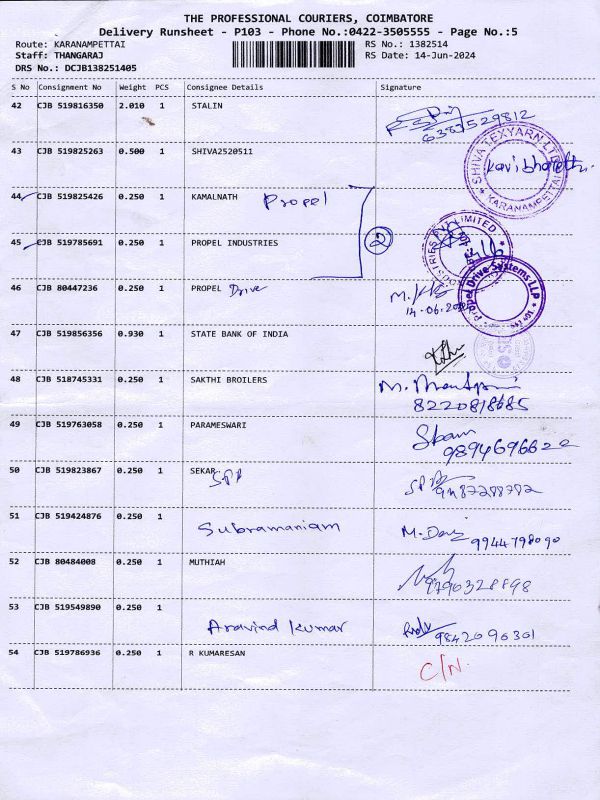 THE PROFESSIONAL COURIERS, COIMBATORE
Delivery Runsheet - P103 - Phone No.:0422-3505555 - Page No.:5
Route: KARANAMPETTAI RS No.: 1382514
Staff: THANGARAJ RS Date: 14-Jun-2024
DRS No.: DCJB138251405
S No Consignment No Weight PCS Consignee Details Signature
42 CJB 519816350 2.010 1 STALIN
43 CJB 519825263 0.500 1 SHIVA2520511
SHIVA TEXYARN LTD
KARANAMPETTAI
44 CJB 519825426 0.250 1 KAMALNATH Propel
45 CJB 519785691 0.250 1 PROPEL INDUSTRIES 2
46 CJB 80447236 0.250 1 PROPEL Drive
Propel Drive Systems LLP
47 CJB 519856356 0.930 1 STATE BANK OF INDIA
48 CJB 518745331 0.250 1 SAKTHI BROILERS
8220818685
49 CJB 519763058 0.250 1 PARAMESWARI
9894696622
50 CJB 519823867 0.250 1 SEKAR
51 CJB 519424876 0.250 1
Subramaniam 9944798090
52 CJB 80484008 0.250 1 MUTHIAH
9790328898
53 CJB 519549890 0.250 1
Aravind Kumar 9842096301
54 CJB 519786936 0.250 1 R KUMARESAN C/N.